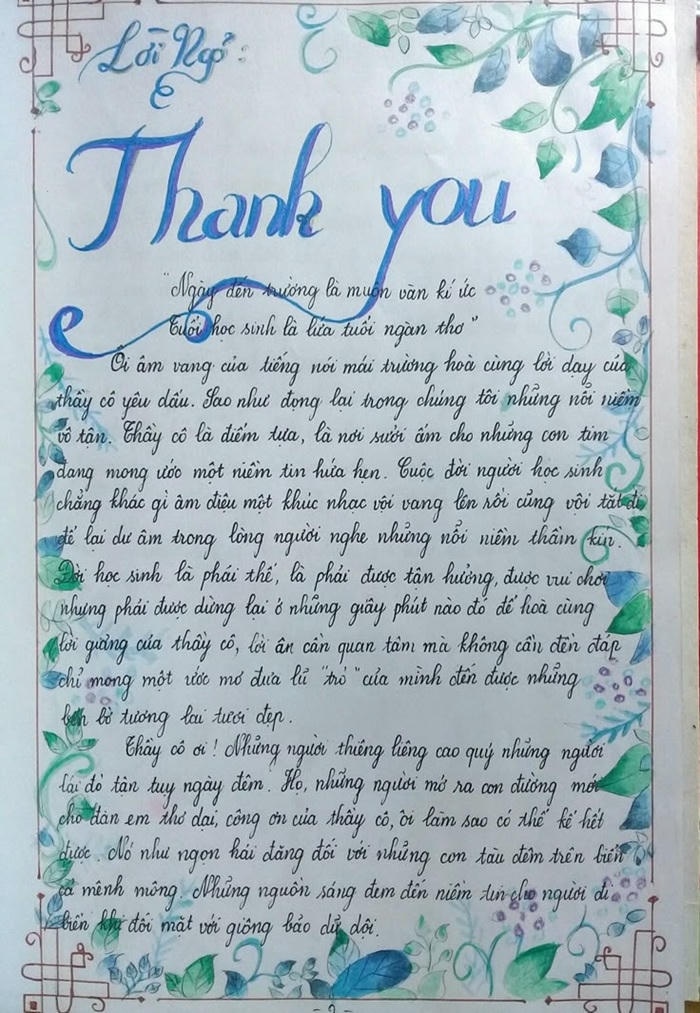 Lời Ngỏ:
Thank you
"Ngày đến trường là muôn vàn kí ức
Tuổi học sinh là lứa tuổi ngàn thơ"
Ôi âm vang của tiếng nói mái trường hoà cùng lời dạy của
thầy cô yêu dấu. Sao như đọng lại trong chúng tôi những nỗi niềm
vô tận. Thầy cô là điểm tựa, là nơi sưởi ấm cho những con tim
đang mong ước một niềm tin hứa hẹn. Cuộc đời người học sinh
chẳng khác gì âm điệu một khúc nhạc vội vang lên rồi cũng vội tắt đi
để lại dư âm trong lòng người nghe những nỗi niềm thầm kín.
Đời học sinh là phải thế, là phải được tận hưởng, được vui chơi
nhưng phải được dừng lại ở những giây phút nào đó để hoà cùng
lời giảng của thầy cô, lời ân cần quan tâm mà không cần đền đáp
chỉ mong một ước mơ đưa lũ "trò" của mình đến được những
bến bờ tương lai tươi đẹp.
Thầy cô ơi! Những người thiêng liêng cao quý những người
lái đò tận tuỵ ngày đêm. Họ, những người mở ra con đường mới
cho đàn em thơ dại, công ơn của thầy cô, ôi làm sao có thể kể hết
được. Nó như ngọn hải đăng đối với những con tàu đêm trên biển
cả mênh mông. Những nguồn sáng đem đến niềm tin cho người đi
biển khi đối mặt với giông bão dữ dội.